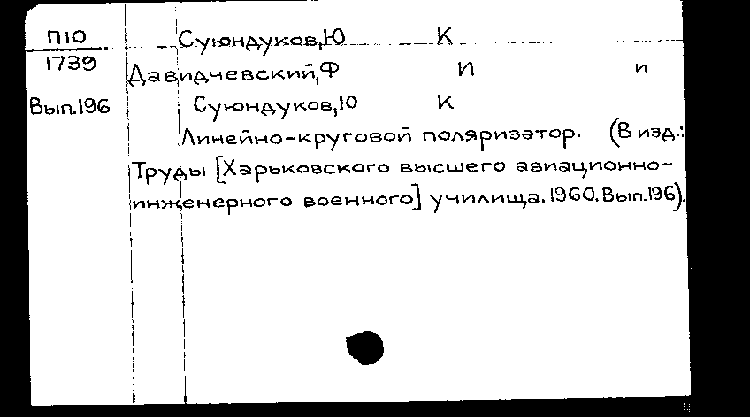 П10 Суюндуков,Ю К
1739 Давидчевский,Ф И и
Вып.196 Суюндуков,Ю К
Линейно-круговой поляризатор. (В изд.:
Труды [Харьковского высшего авиационно-
инженерного военного] училища. 1960. Вып.196).